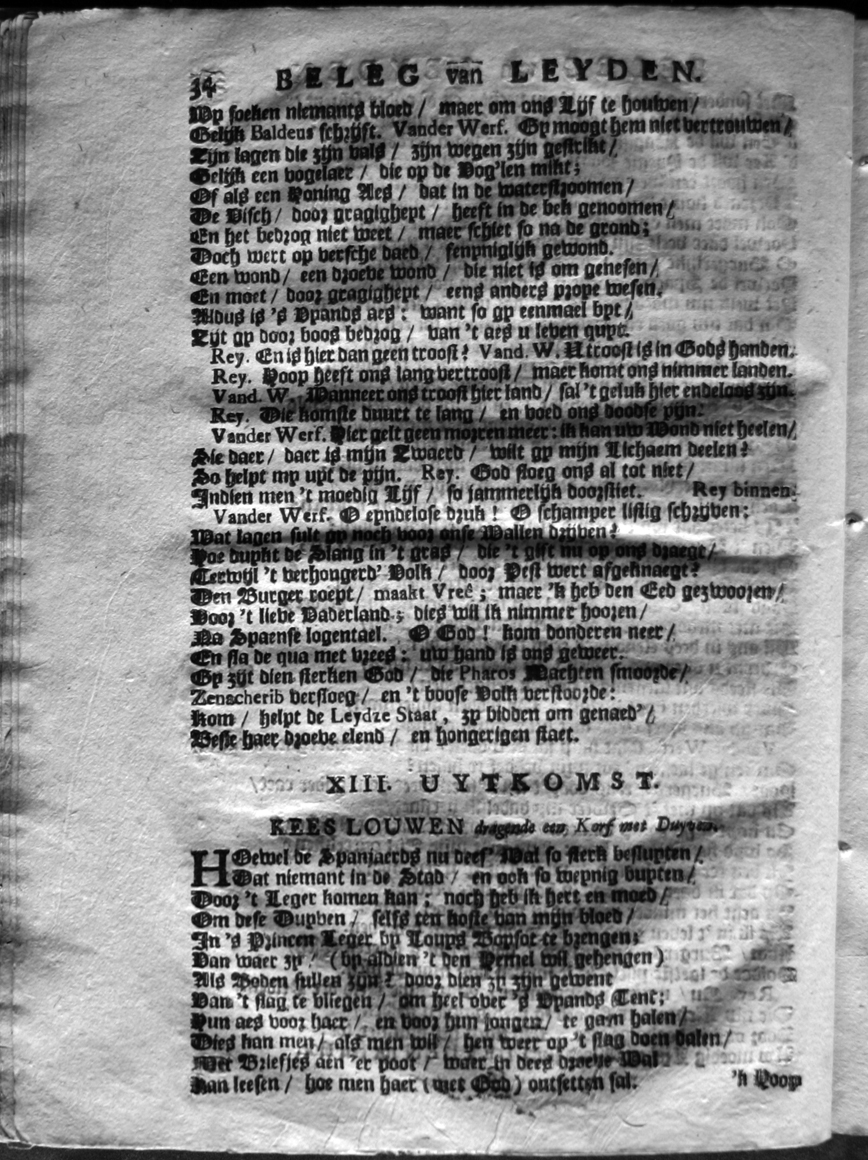 34 BELEG van LEYDEN.
Wy soeken niemants bloed / maer om ons Lijf te houwen /
Gelijk Baldeus schrijft. Vander Werf. Gy moogt hem niet vertrouwen /
Zijn lagen die zijn vals / zijn wegen zijn gestrikt /
Gelijk een vogelaer / die op de Vog'len mikt;
Of als een Koning Aes / dat in de waterstroomen /
De Visch / door gragigheyt / heeft in de bek genoomen /
En het bedrog niet weet / maer schiet so na de grond;
Doch wert op versche daed / fenyniglijk gewond.
Een wond / een droeve wond / die niet is om genesen /
En moet / door gragigheyt / eens anders proye wesen.
Aldus is 's Vyands aes: want so gy eenmael byt /
Zijt gy door boos bedrog / van 't aes u leven quyt.
Rey. En is hier dan geen troost? Vand. W. U troost is in Gods handen.
Rey. Hoop heeft ons lang vertroost / maer komt ons nimmer landen.
Vand. W. Wanneer ons troost hier land / sal 't geluk hier endeloos zijn.
Rey. Die komste duurt te lang / en voed ons doodse pijn.
Vander Werf. Hier gelt geen morren meer: ik kan uw Wond niet heelen /
Sie daer / daer is mijn Zwaerd / wilt gy mijn Lichaem deelen?
So helpt my uyt de pijn. Rey. God sloeg ons al tot niet /
Indien men 't moedig Lijf / so jammerlijk doorstiet. Rey binnen.
Vander Werf. O eyndelose druk! O schamper listig schrijven;
Wat lagen sult gy noch voor onse Wallen drijven?
Hoe duykt de Slang in 't gras / die 't gift nu op ons draegt /
Terwijl 't verhongerd' Volk / door Pest wert afgeknaegt?
Den Burger roept / maakt Vreê; maer 'k heb den Eed gezwooren /
Voor 't lieve Vaderland; dies wil ik nimmer hooren /
Na Spaense logentael. O God! kom donderen neer /
En sla de qua met vrees: uw hand is ons geweer.
Gy zijt dien sterken God / die Pharos Machten smoorde /
Zenscherib versloeg / en 't boose Volk verstoorde:
Kom / helpt de Leydze Staat, zy bidden om genaed' /
Besie haer droeve elend / en hongerigen staet.
XIII. UYTKOMST.
KEES LOUWEN dragende een Korf met Duyven.
HOewel de Spanjaerds nu dees' Wal so sterk besluyten /
Dat niemant in de Stad / en ook so weynig buyten /
Door 't Leger komen kan; noch heb ik hert en moed /
Om dese Duyven / selfs ten koste van mijn bloed /
In 's Princen Leger by Louys Boysot te brengen;
Van waer zy / (by aldien 't den Hemel wil gehengen)
Als Boden sullen zijn? door dien zy zijn gewent
Van 't slag te vliegen / om heel over 's Vyands Tent;
Hun aes voor haer / en voor hun jongen / te gaen halen /
Dies kan men / als men wil / hen weer op 't slag doen dalen /
Met Briefjes aen 'er poot / waer in dees droeve Wal
Kan leesen / hoe men haer (met God) ontsetten sal.
'k Hoop